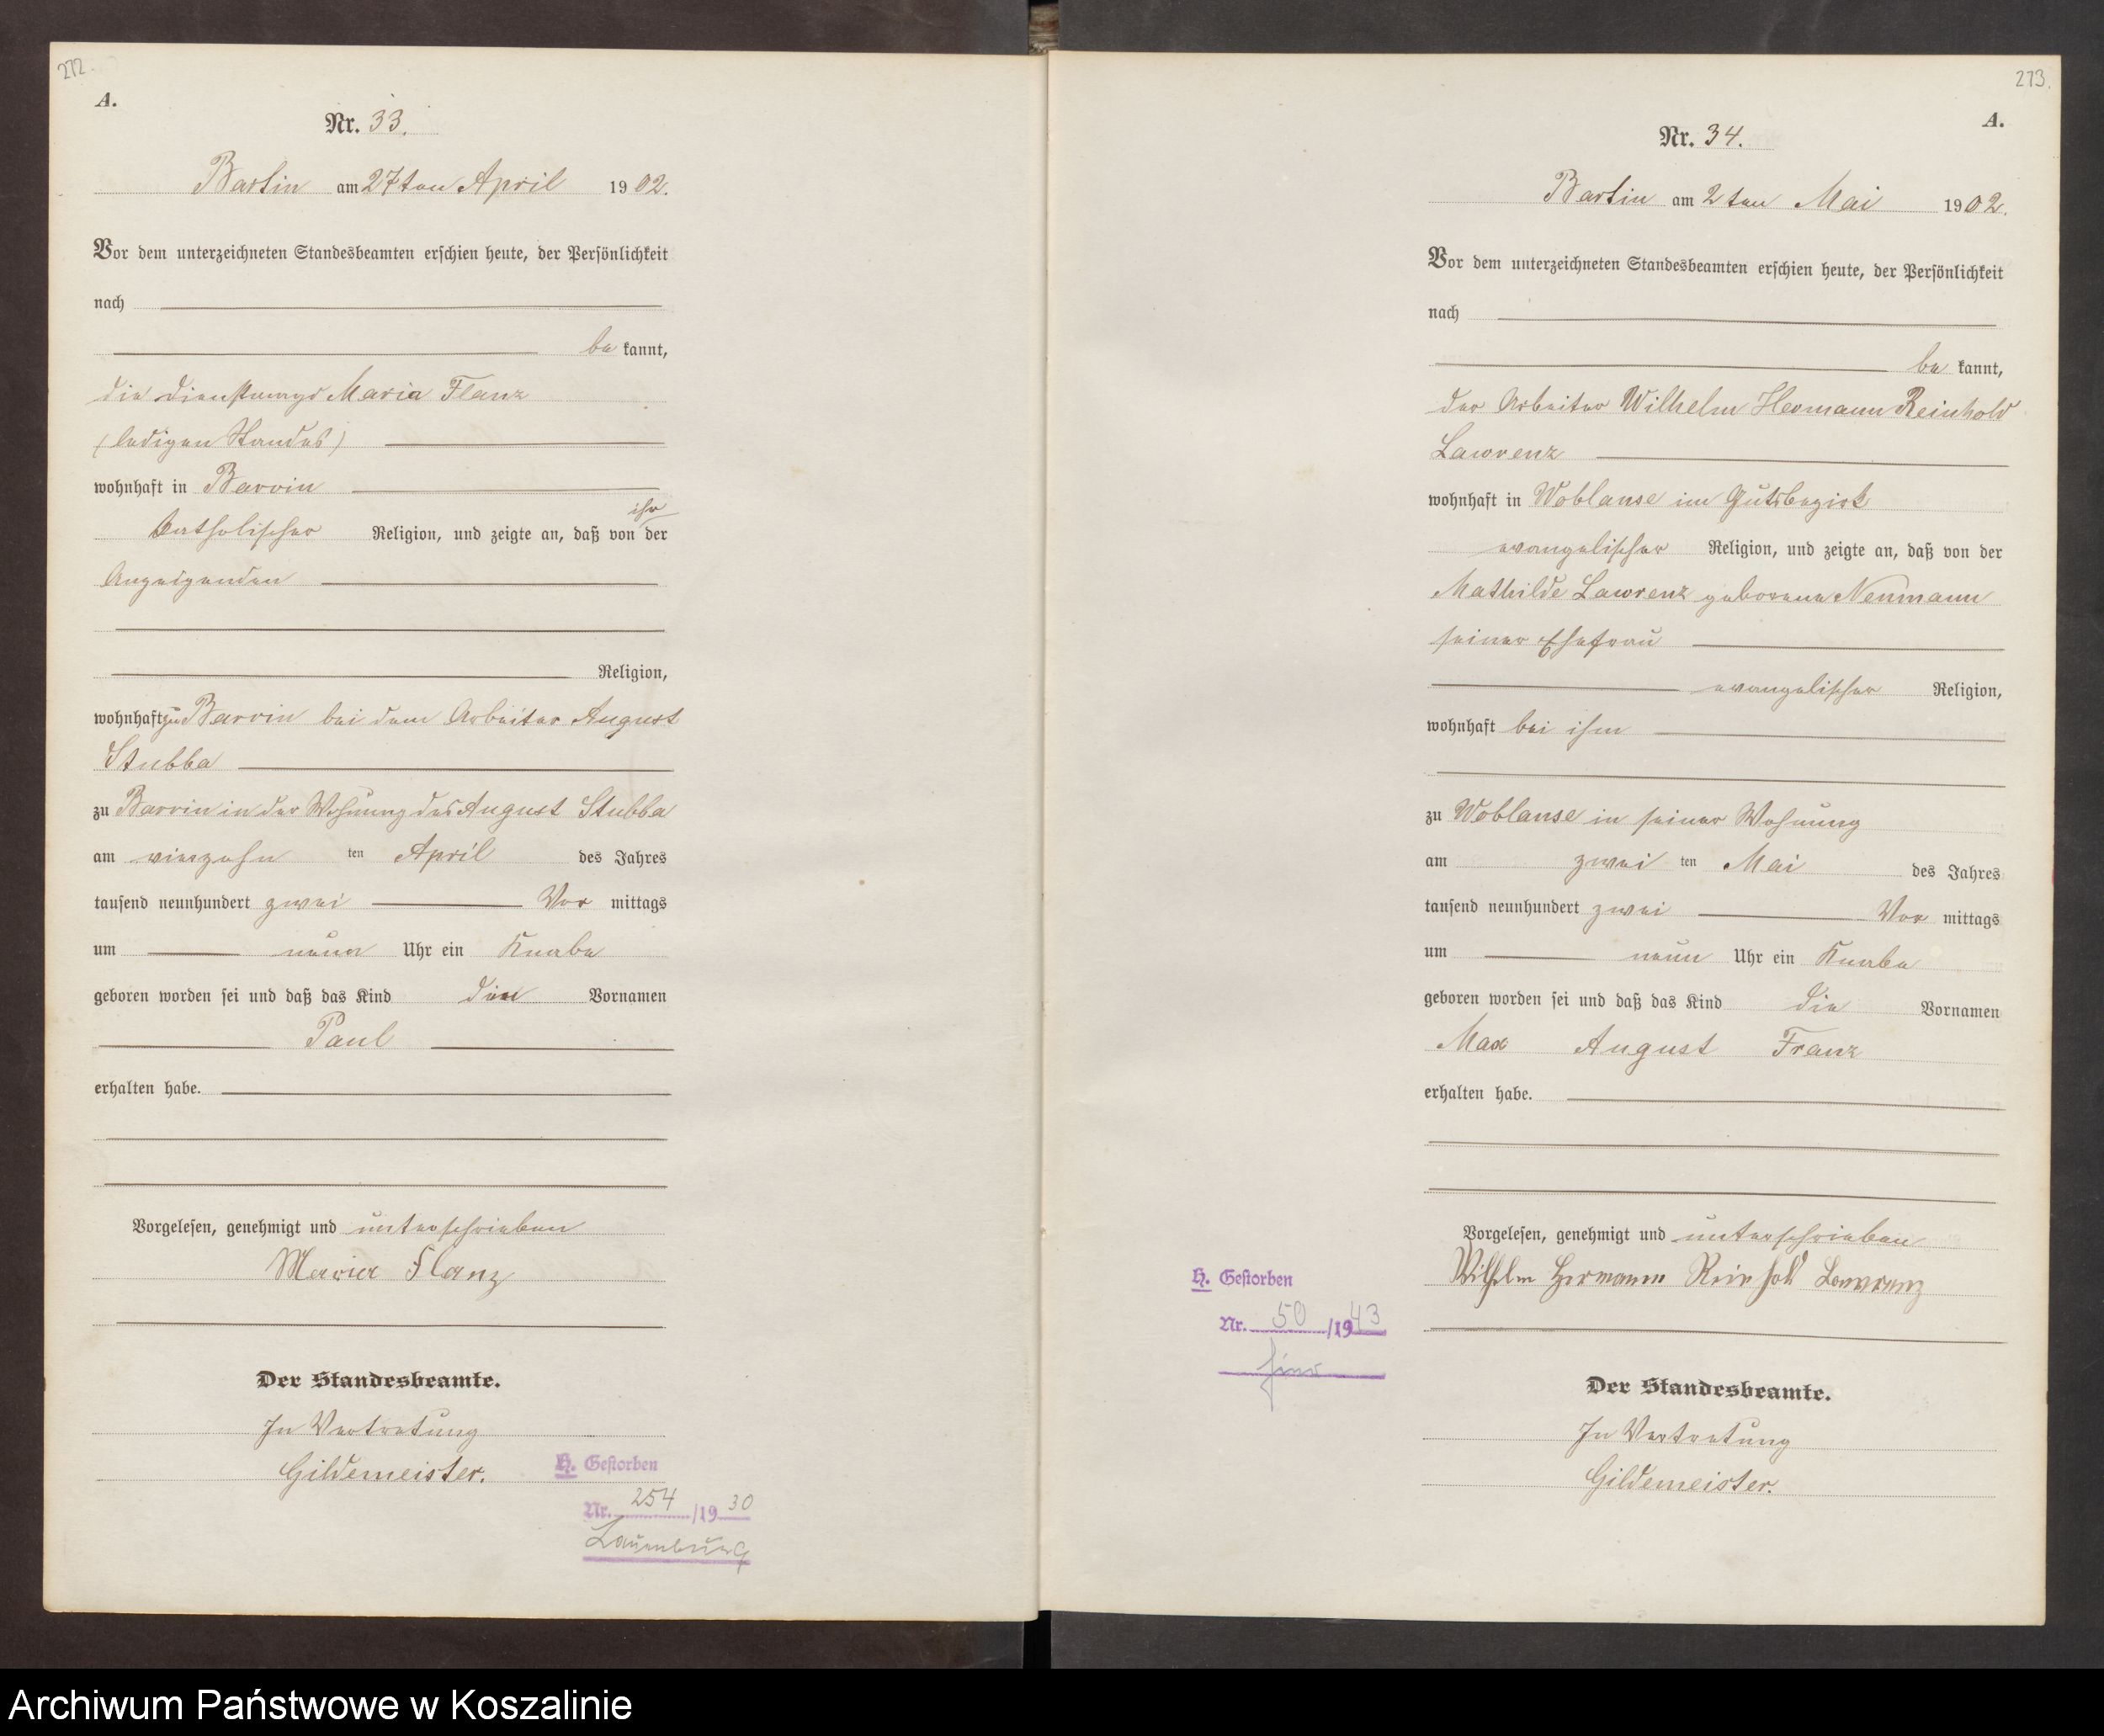 272.
A.
Nr. 33.
Bartin am 27ten April 1902.
Vor dem unterzeichneten Standesbeamten erschien heute, der Persönlichkeit
nach
be kannt,
die Dienstmagd Maria Flanz
(ledigen Standes)
wohnhaft in Barvin
ihr
katholischer Religion, und zeigte an, daß von der
Anzeigenden
Religion,
wohnhaft zu Barvin bei dem Arbeiter August
Stubba
zu Barvin in der Wohnung des August Stubba
am vierzehn ten April des Jahres
tausend neunhundert zwei Vor mittags
um neun Uhr ein Knabe
geboren worden sei und daß das Kind den Vornamen
Paul
erhalten habe.
Vorgelesen, genehmigt und unterschrieben
Maria Flanz
Der Standesbeamte.
In Vertretung
Gildemeister.
H. Gestorben
Nr. 254 /19 30
Lauenburg
273.
A.
Nr. 34.
Bartin am 2ten Mai 1902.
Vor dem unterzeichneten Standesbeamten erschien heute, der Persönlichkeit
nach
be kannt,
der Arbeiter Wilhelm Hermann Reinhold
Lawrenz
wohnhaft in Woblanse im Gutsbezirk
evangelischer Religion, und zeigte an, daß von der
Mathilde Lawrenz geborene Neumann
seiner Ehefrau
evangelischer Religion,
wohnhaft bei ihm
zu Woblanse in seiner Wohnung
am zwei ten Mai des Jahres
tausend neunhundert zwei Vor mittags
um neun Uhr ein Knabe
geboren worden sei und daß das Kind die Vornamen
Max August Franz
erhalten habe.
Vorgelesen, genehmigt und unterschrieben
Wilhelm Hermann Reinhold Lawrenz
Der Standesbeamte.
In Vertretung
Gildemeister.
H. Gestorben
Nr. 50 /1943
hier
Archiwum Państwowe w Koszalinie